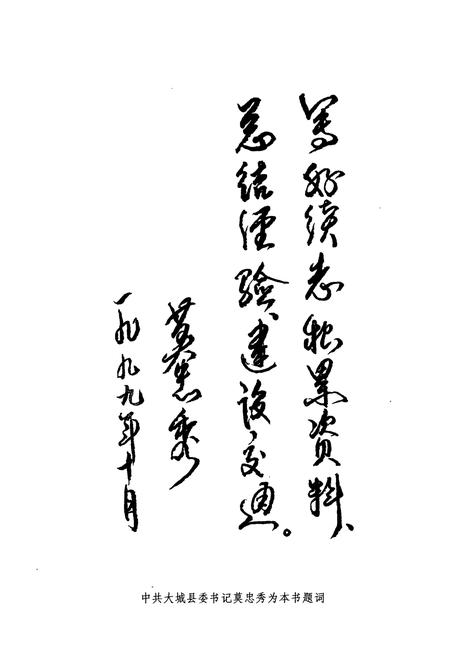 写好续志积累资料、
总结经验、建设交通。
莫忠秀
一九九九年十月
中共大城县委书记莫忠秀为本书题词